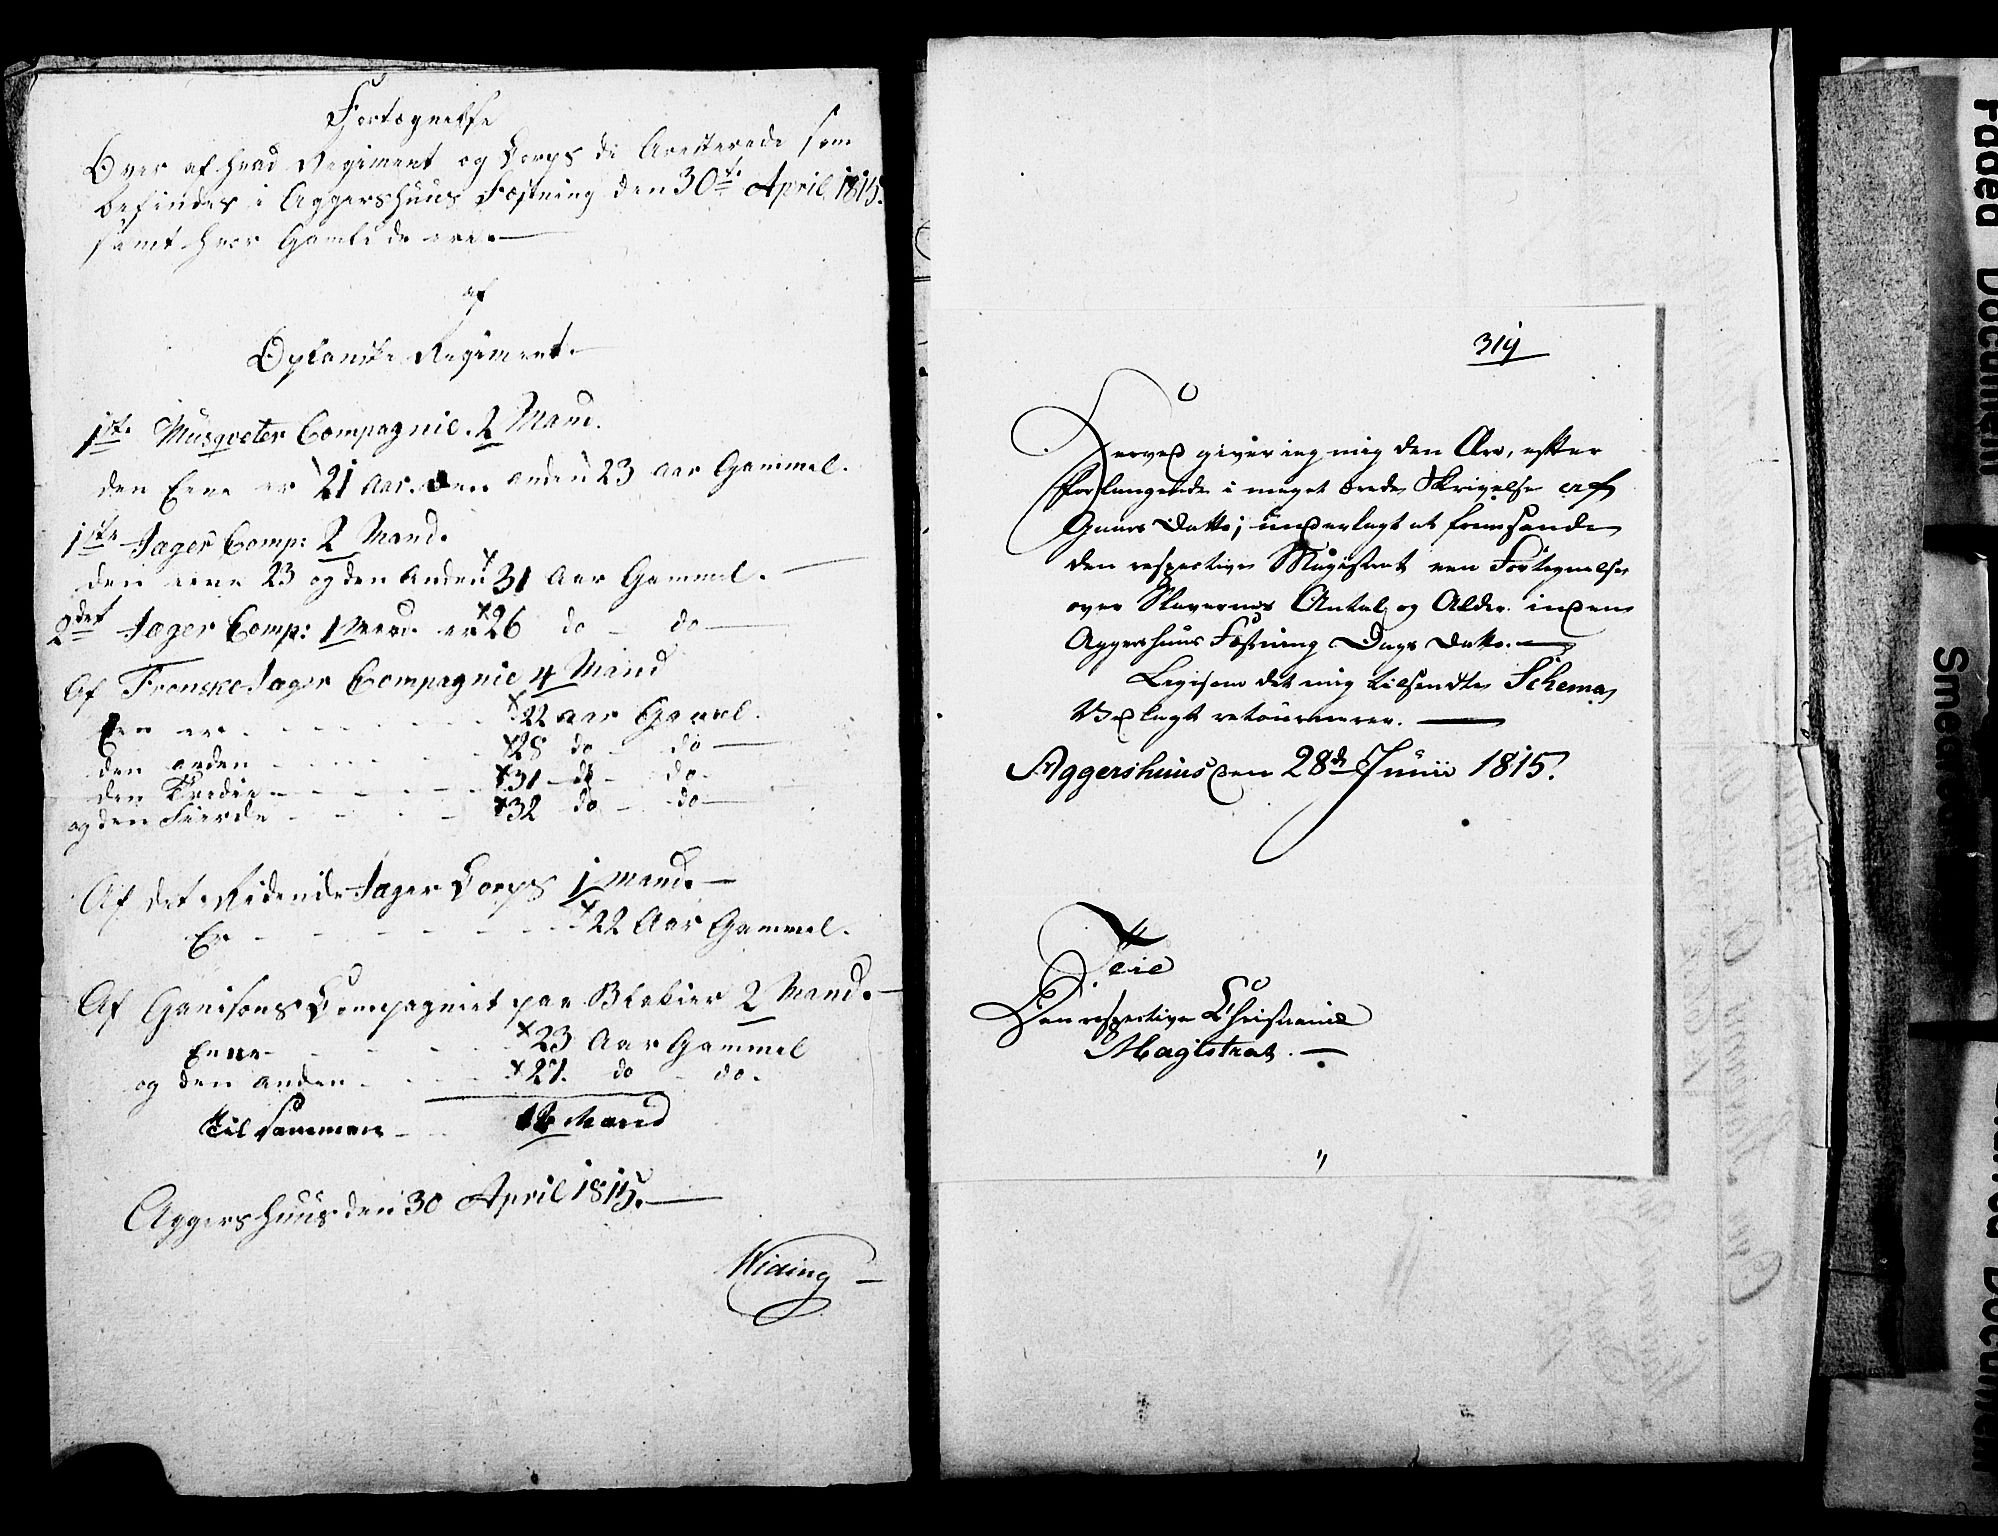 Fortegnelse
Over af hvad Regiment og Corps de Aresterede som
befindes i Aggershuus Fæstning den 30te April 1815.
samt hvor Gamle de ere.
af
Oplanske Regiment.
1ste Musqveter Compagnie. 2 Mand.
den Eene er 21 Aar. den anden 23 Aar Gammel.
1ste Jager Comp: 2 Mand.
den eene 23 og den anden 31 Aar Gammel.
2det Jager Comp: 1 Mand. er 26 do - do
Af Fronske Jager Compagnie 4 Mand
Een er - - - 22 aar Gamel.
den anden - - - 28 do - do
den Tredie - - - 31 - do - do.
og den Fierde - - - 32 do - do
Af det Ridende Jager Corps 1 Mand.
Er - - - 22 Aar Gammel.
Af Garnisons Compagniet paa Blekier 2 Mand.
Eene - - - 23 Aar Gammel
og den anden - - - 27. do - do.
Til sammen - - 12 Mand
Aggershuus den 30 April 1815.
Widing
319
Herved giver jeg mig den Ære, efter
forlangende i meget ærede Skrivelse af
Gaars Datto; underlagt at fremsende
den respective Magistrat een Fortegnelse
over Slavernes Antal og Alder inden
Aggershuus Fæstning Dags Datto.
Ligesom det mig tilsendte Schema
Vedlagt retournerer.
Aggershuus den 28de Junii 1815.
Den respective Christiania
Magistrat.
Faded Document